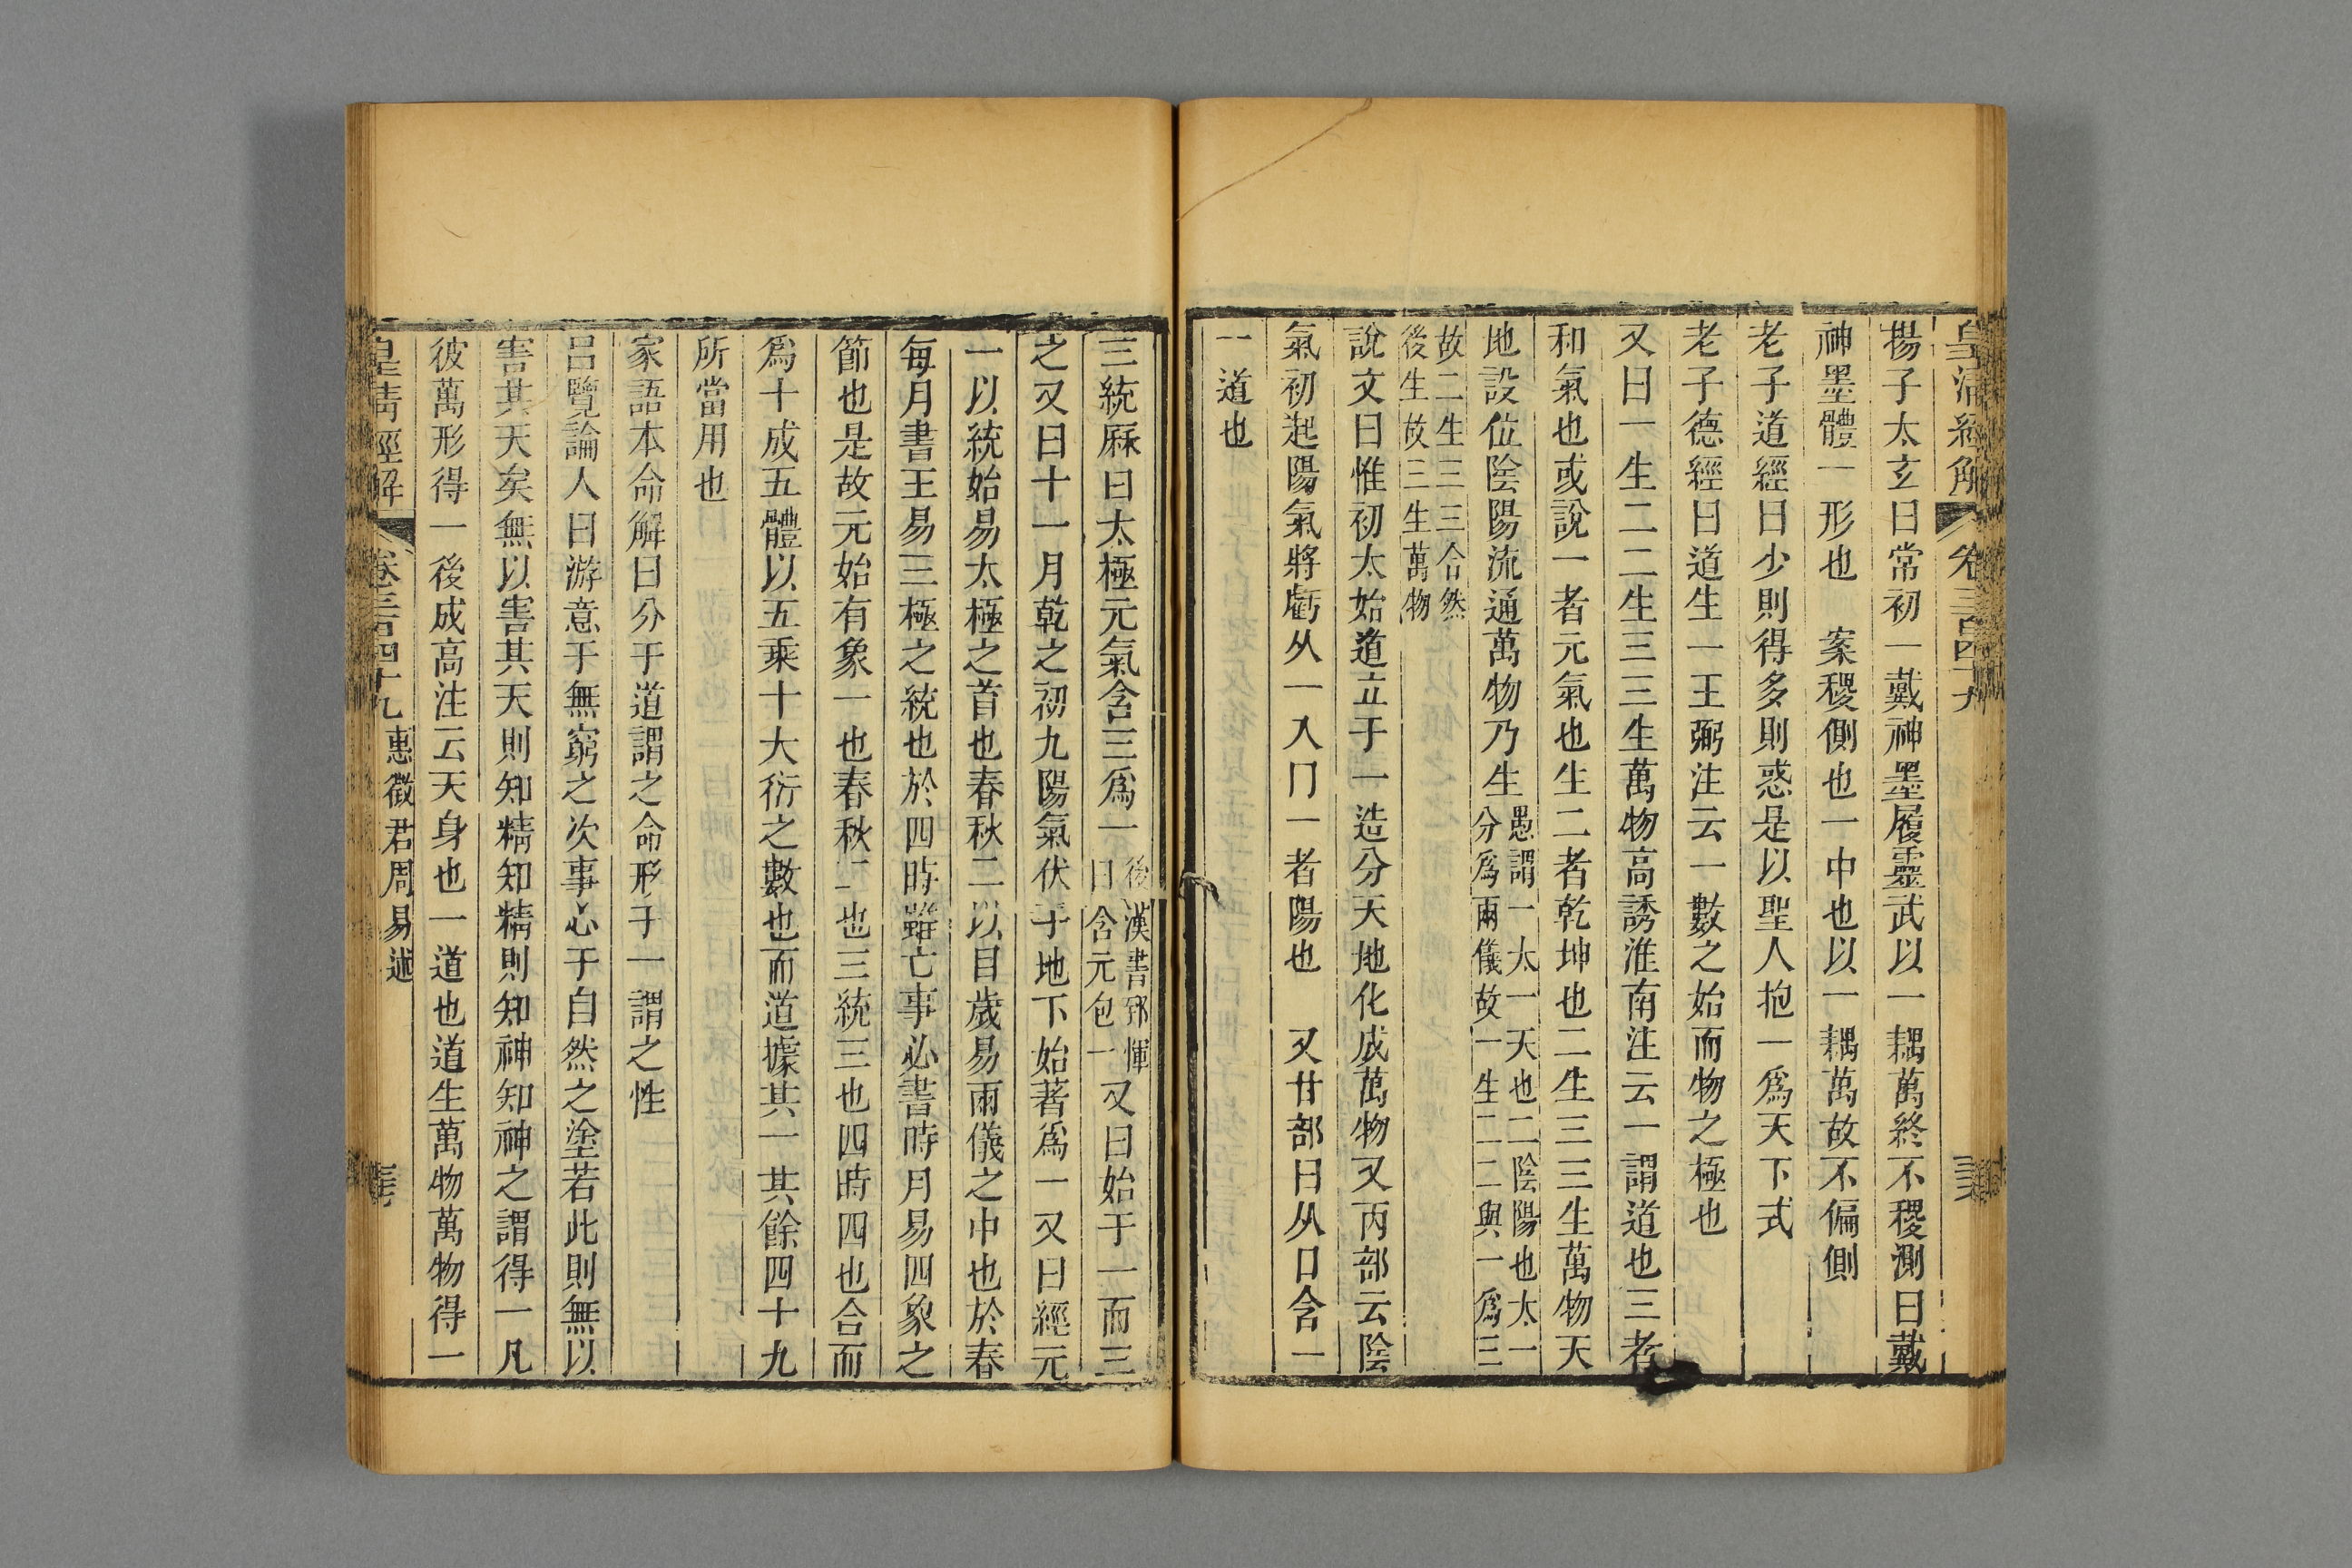 皇清經解
卷三百四十九
揚子太玄曰常初一戴神墨履靈武以一耦萬終不稷測曰戴
神墨體一形也　案稷側也一中也以一耦萬故不偏側
老子道經曰少則得多則惑是以聖人抱一爲天下式
老子德經曰道生一王弼注云一數之始而物之極也
又曰一生二二生三三生萬物高誘淮南注云一謂道也三者
和氣也或說一者元氣也生二者乾坤也二生三三生萬物天
地設位陰陽流通萬物乃生愚謂一太一天也二陰陽也太一
分爲兩儀故一生二二與一爲三
故二生三三合然
後生故三生萬物
說文曰惟初太始道立于一造分天地化成萬物又丙部云陰
氣初起陽氣將虧从一入冂一者陽也　又甘部曰从口含一
一道也
三統厤曰太極元氣含三爲一後漢書郅惲
曰含元包一又曰始于一而三
之又曰十一月乾之初九陽氣伏于地下始著爲一又曰經元
一以統始易太極之首也春秋二以目歲易兩儀之中也於春
每月書王易三極之統也於四時雖亡事必書時月易四象之
節也是故元始有象一也春秋二也三統三也四時四也合而
爲十成五體以五乘十大衍之數也而道據其一其餘四十九
所當用也
家語本命解曰分于道謂之命形于一謂之性
呂覽論人曰游意于無窮之次事心于自然之塗若此則無以
害其天矣無以害其天則知精知精則知神知神之謂得一凡
彼萬形得一後成高注云天身也一道也道生萬物萬物得一
皇清經解
卷三百四十九
惠徵君周易述